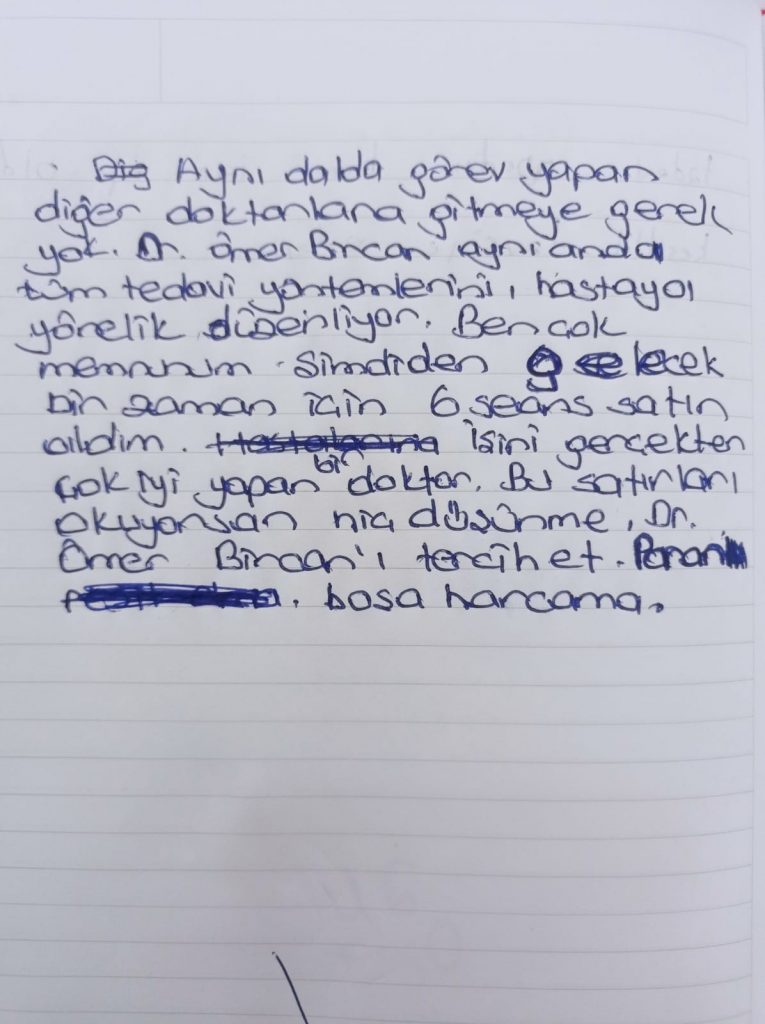 Aynı dalda görev yapan
diğer doktorlara gitmeye gerek
yok. Dr. Ömer Bircan aynı anda
tüm tedavi yöntemlerini, hastaya
yönelik düzenliyor. Ben çok
memnunum. Şimdiden gelecek
bir zaman için 6 seans satın
aldım. işini gerçekten
çok iyi yapan bir doktor. Bu satırları
okuyorsan hiç düşünme, Dr.
Ömer Bircan'ı tercih et. Paranı
boşa harcama.